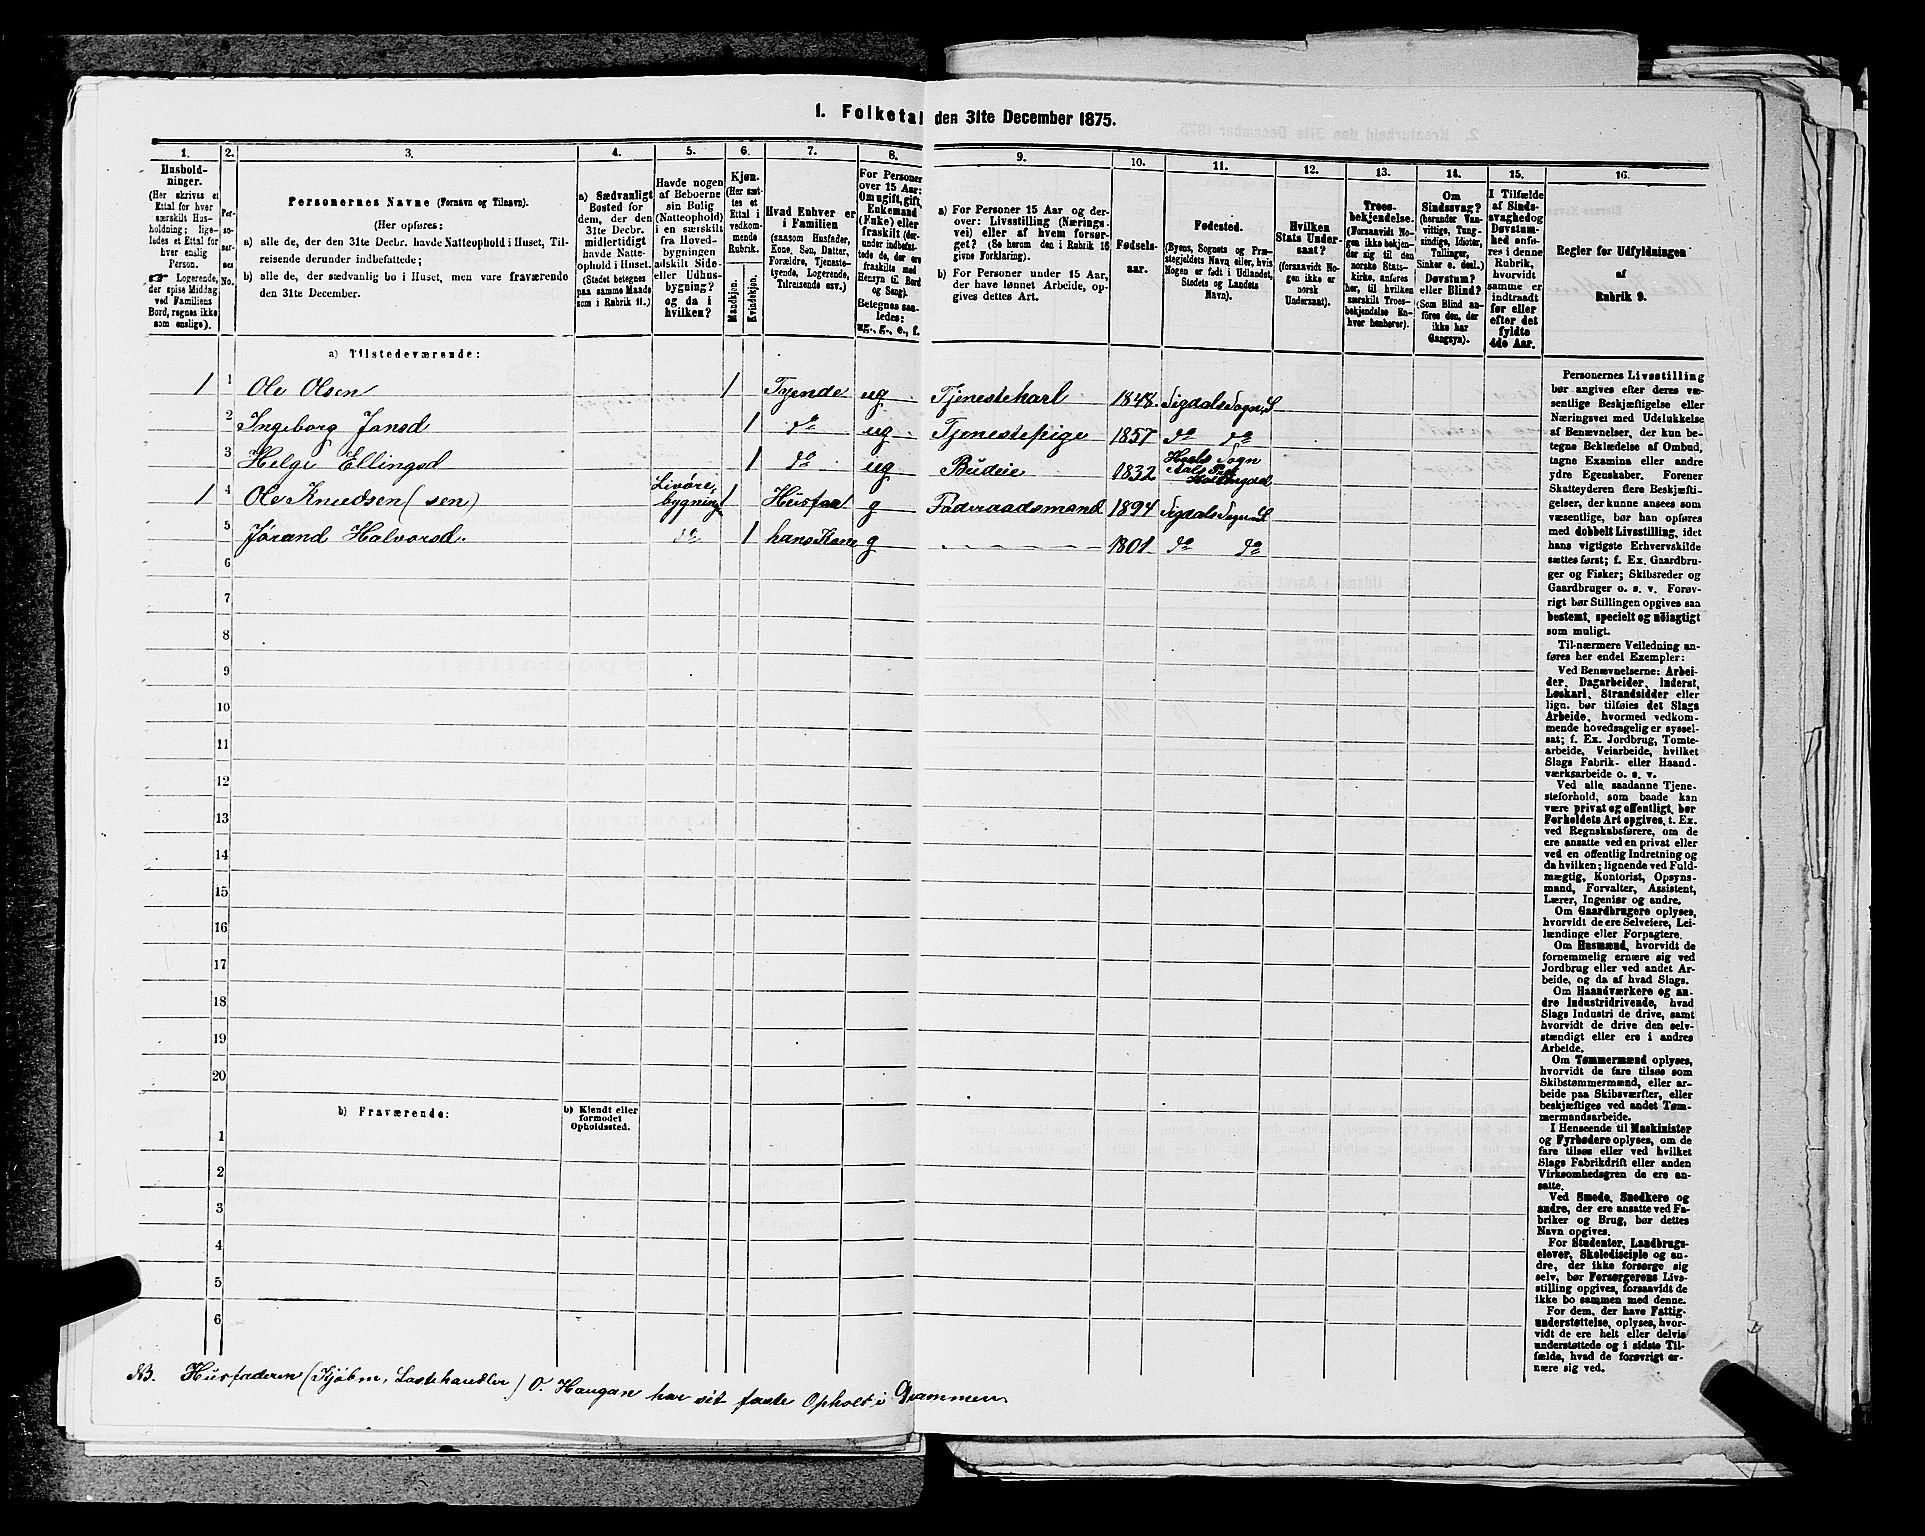 1. Folketal den 31te December 1875.
1.
2.
3.
4.
5.
6.
7.
8.
9.
10.
11.
12.
13.
14.
15.
16.
Hushold-
ninger.
(Her skrives et
Ettal for hver
særskilt Hus-
holdning; lige-
ledes et Ettal for
hver enslig
Person.
☞ Logerende,
der spise Middag
ved Familiens
Bord, regnes ikke
som enslige).
Per-
so-
ner-
nes
No.
Personernes Navne (Fornavn og Tilnavn).
(Her opføres:
a) alle de, der den 31te Decbr. havde Natteophold i Huset, Til-
reisende derunder indbefattede;
b) alle de, der sædvanlig bo i Huset, men vare fraværende
den 31te December.
a) Sædvanligt
Bosted for
dem, der den
31te Decbr.
midlertidigt
havde Natte-
ophold i Huset.
(Stedet betegnes
paa samme Maade
som i Rubrik 11.)
Havde nogen
af Beboerne
sin Bolig
(Natteophold)
i en særskilt
fra Hoved-
bygningen
adskilt Side-
eller Udhus-
bygning?
og da i
hvilken?
Kjøn.
(Her sæt-
tes et
Ettal i
vedkom-
mende
Rubrik.
Mandkjøn.
Kvindekjøn.
Hvad Enhver er
i Familien
(saasom Husfader,
Kone, Søn, Datter,
Forældre, Tjeneste-
tyende, Logerende,
Tilreisende osv.)
For Personer
over 15 Aar:
Om ugift, gift,
Enkemand
(Enke) eller
fraskilt (der-
under indbefat-
tede de, der ere
fraskilte med
Hensyn til Bord
og Seng).
Betegnes saa-
ledes:
ug., g., e., f.
a) For Personer 15 Aar og der-
over: Livsstilling (Nærings-
vei) eller af hvem forsør-
get? (Se herom den i Rubrik 16
givne Forklaring).
b) For Personer under 15 Aar,
der have lønnet Arbeide, op-
gives dettes Art.
Fødsels-
aar.
Fødested.
(Byens, Sognets og Præ-
stegjeldets Navn eller, hvis
Nogen er født i Udlandet,
Stedets og Landets
Navn).
Hvilken
Stats Under-
saat?
(forsaavidt No-
gen ikke er
norsk
Undersaat).
Troes-
bekjendelse.
(Forsaavidt No-
gen ikke bekjen-
der sig til den
norske Stats-
kirke, anføres
her, til hvilken
særskilt Troes-
bekjendelse En-
hver henhører).
Om
Sindssvag?
(herunder Van-
vittige, Tung-
sindige, Idioter,
Tullinger,
Sinker o. desl.)
Døvstum?
eller Blind?
(Som Blind an-
føres den, der
ikke har
Gangsyn).
I Tilfælde
af Sinds-
svaghed og
Døvstum-
hed anfø-
res i denne
Rubrik,
hvorvidt
samme er
indtraadt
før eller
efter det
fyldte
4de Aar.
Regler for Udfyldningen
af
Rubrik 9.
a) Tilstedeværende:
1 1 Ole Olsen 1 Tyende ug Tjenestekarl 1848. Sigdals Sogn,
2 Ingeborg Jonsd 1 do ug Tjenestepige 1857 do do
3 Helge Ellingsd 1 do ug Budeie 1832 Sogn
1 4 Ole Knudsen (sen) bygning 1 Husfaa g Føderaadsmand 1894 Sigdals
5 Jørand Halvorsd. do 1 hans Kone g 1801 do do
6
7
8
9
10
11
12
13
14
15
16
17
18
19
20
b) Fraværende:
b) Kjendt eller
formodet
Opholdssted.
1
2
3
4
5
6
Personernes Livsstilling
bør angives efter deres væ-
sentlige Beskjæftigelse eller
Næringsvei med Udelukkelse
af Benævnelser, der kun be-
tegne Beklædelse af Ombud,
tagne Examina eller andre
ydre Egenskaber. Forener
Skatteyderen flere Beskjæfti-
gelser, der kunne ansees som
væsentlige, bør han opføres
med dobbelt Livsstilling, idet
hans vigtigste Erhvervskilde
sættes først; f. Ex. Gaardbru-
ger og Fisker; Skibsreder og
Gaardbruger o. s. v. Forøv-
rigt bør Stillingen opgives saa
bestemt, specielt og nøiagtigt
som muligt.
Til nærmere Veiledning an-
føres her endel Exempler:
Ved Benævnelserne: Arbei-
der, Dagarbeider, Inderst,
Løskarl, Strandsidder eller
lign. bør tilføies det Slags
Arbeide, hvormed vedkom-
mende hovedsagelig er syssel-
sat; f. Ex. Jordbrug, Tomte-
arbeide, Veiarbeide, hvilket
Slags Fabrik- eller Haand-
værksarbeide o. s. v.
Ved alle saadanne Tjene-
steforhold, som baade kan
være privat og offentligt, bør
Forholdets Art opgives, t. Ex.
ved Regnskabsførere, om de
ere ansatte ved en privat eller
ved en offentlig Indretning og
da hvilken; lignende ved Fuld-
mægtig, Kontorist, Opsyns-
mand, Forvalter, Assistent,
Lærer, Ingeniør og andre.
Om Gaardbrugere oplyses,
hvorvidt de ere Selveiere, Lei-
lændinge eller Forpagtere.
Om Husmænd, hvorvidt de
fornemmelig ernære sig ved
Jordbrug eller ved andet Ar-
beide, og da af hvad Slags.
Om Haandværkere og an-
dre Industridrivende, hvad
Slags Industri de drive, samt
hvorvidt de drive den selv-
stændigt eller ere i andres
Arbeide.
Om Tømmermænd oplyses,
hvorvidt de fare tilsøs som
Skibstømmermænd, eller ar-
beide paa Skibsværfter, eller
beskjæftiges ved andet Tøm-
mermandsarbeide.
I Henseende til Maskinister
og Fyrbødere oplyses, om de
fare tilsøs eller ved hvilket
Slags Fabrikdrift eller anden
Virksomhedsgren de ere an-
satte.
Ved Smede, Snedkere og
andre, der ere ansatte ved Fa-
briker og Brug, bør dettes
Navn opgives.
For Studenter, Landbrugs-
elever, Skoledisciple og an-
dre, der ikke forsørge sig
selv, bør Forsørgerens Livs-
stilling opgives, forsaavidt de
ikke bo sammen med denne.
For dem, der have Fattig-
understøttelse, oplyses, hvor-
vidt de ere helt eller delvis
understøttede og i sidste Til-
fælde, hvad de forøvrigt er-
nære sig ved.
NB. Husfaderen (Kjøbm, Lastehandler) O. Haugan har sit faste Ophold i Drammen.